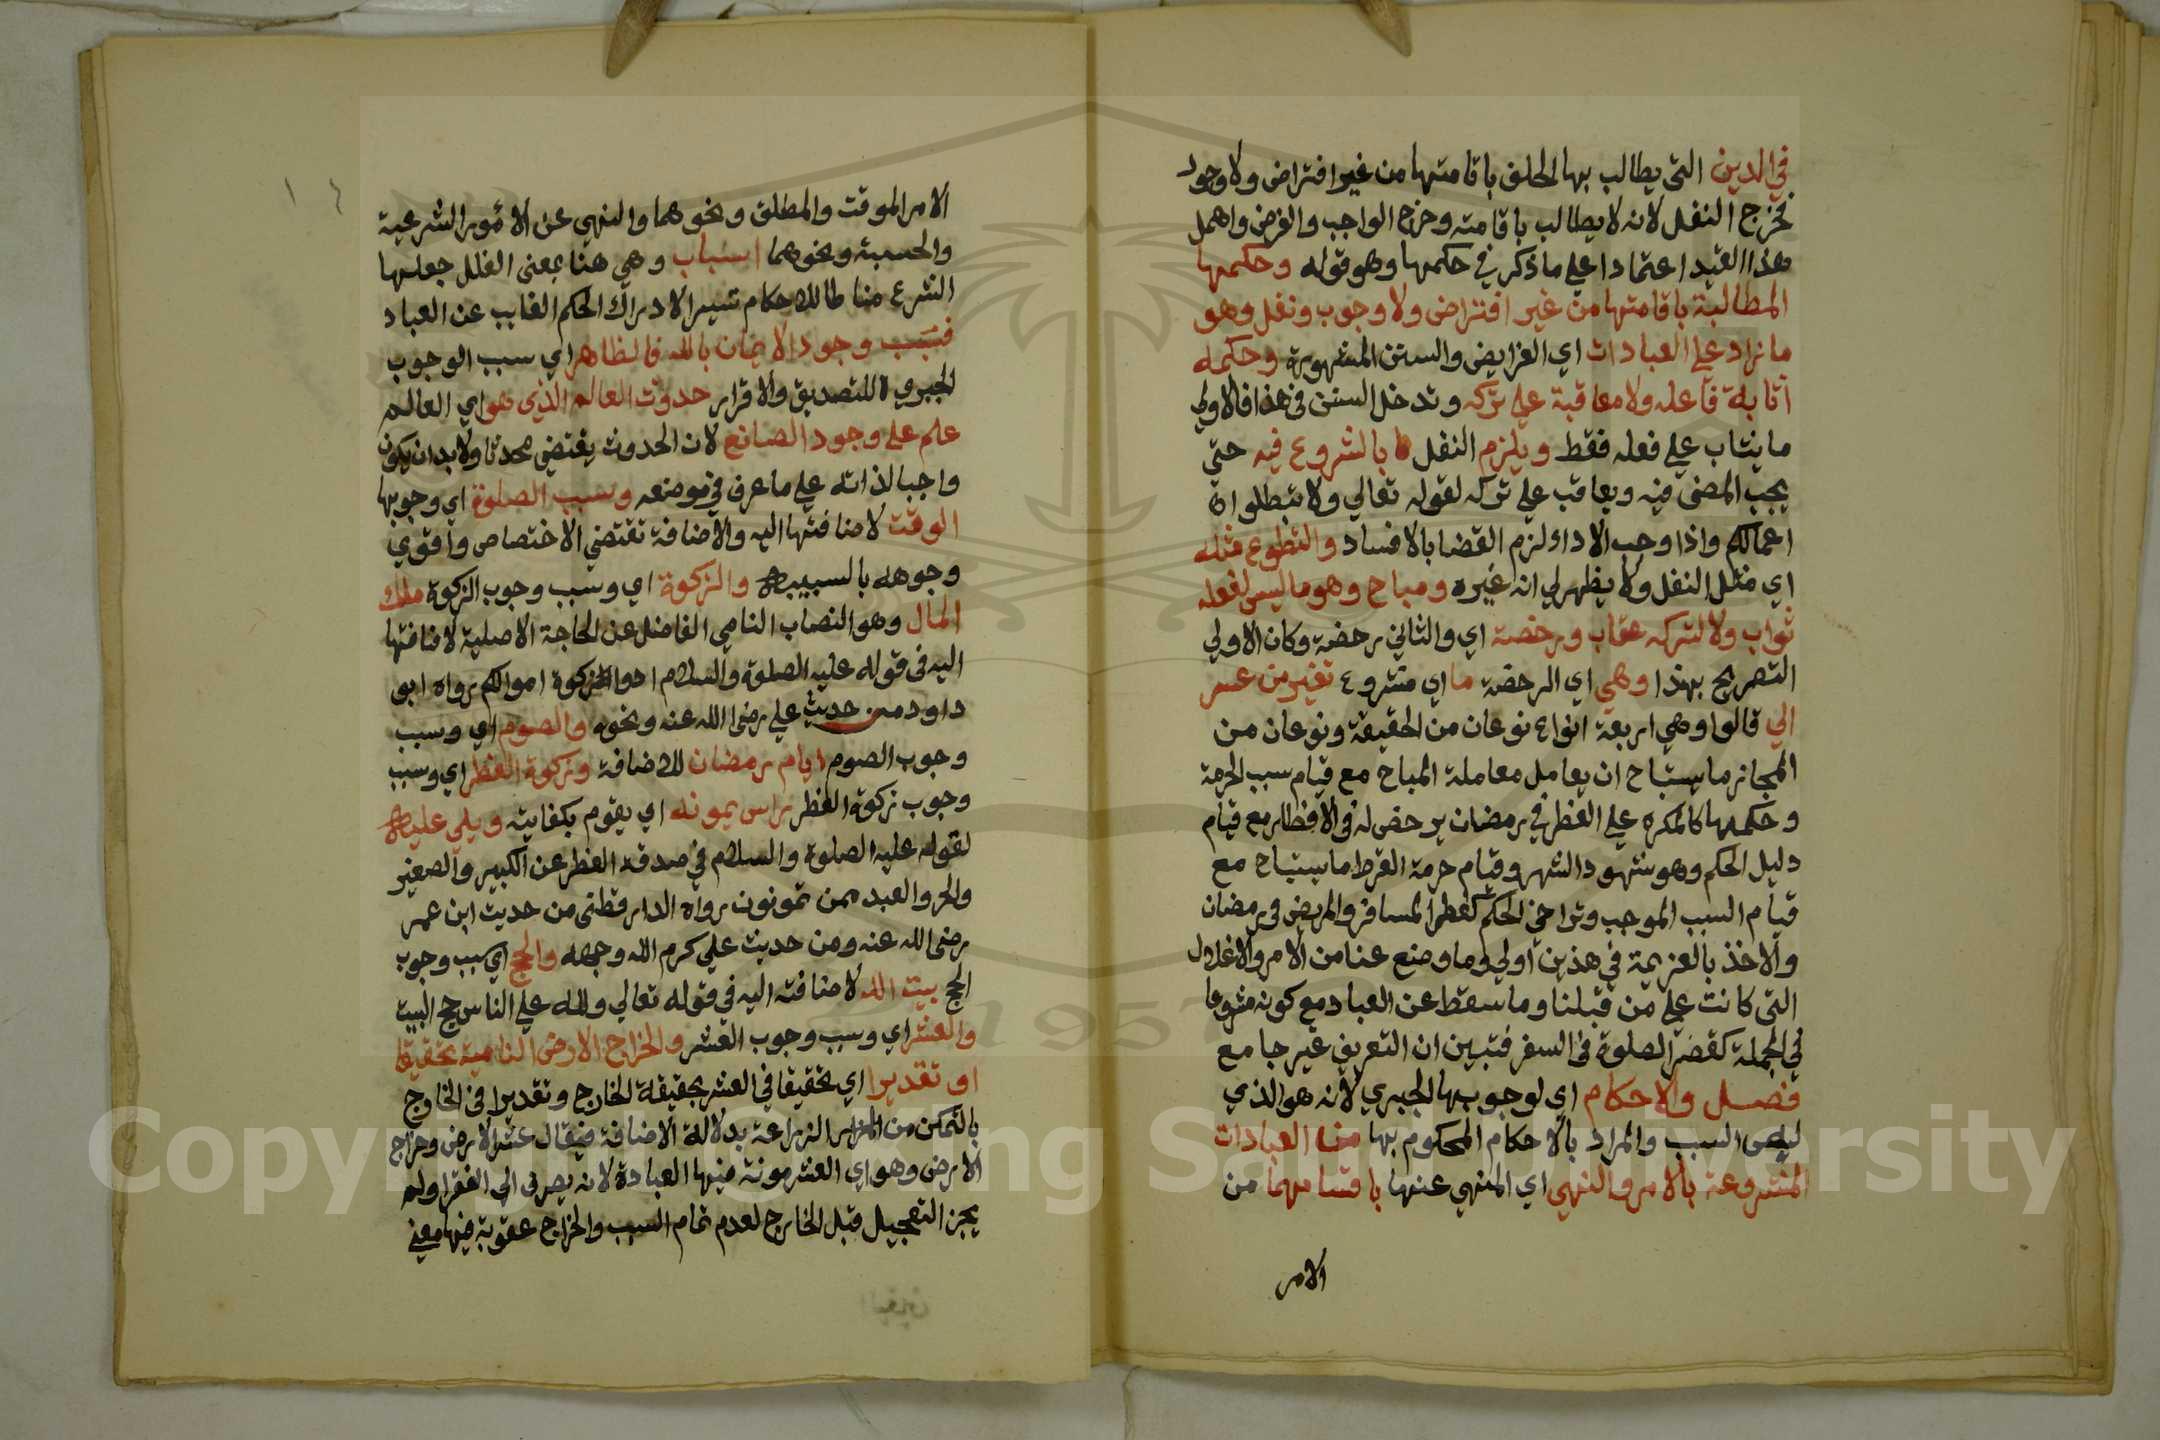 في الدين التي يطالب بها الخلق باقامتها من غير افتراض ولا وجود
خرج النفل لانه لا يطالب باقامته وخرج الواجب والفرض واهمل
هذا القيد اعتمادا علي ما ذكر في حكمها وهو قوله وحكمها
المطالبة باقامتها من غير افتراض ولا وجوب ونفل وهو
ما زاد علي العبادات اي الفرايض والسنن المشهورة وحكمه
اثابة فاعله ولا معاقبة علي تركه وتدخل السنن في هذا فالاولي
ما يثاب علي فعله فقط ويلزم النفل بالشروع فيه حتي
يجب المضي فيه ويعاقب علي تركه لقوله تعالي ولا تبطلوا
اعمالكم واذا وجب الادا ولزم القضا بالافساد والتطوع مثله
اي مثل النفل ولا يظهر لي انه غيره ومباح وهو ما ليس لفعله
ثواب ولا لتركه عقاب ورخصة اي والثاني رخصة وكان الاولي
التصريح بهذا وهي اي الرخصة ما اي مشروع تغير من عسر
الي قالوا وهي اربعة انواع نوعان من الحقيقة ونوعان من
المجاز ما يستباح ان يعامل معاملة المباح مع قيام سبب الحرمة
وحكمها كالمكره علي الفطر في رمضان يرخص له في الافطار مع قيام
دليل الحكم وهو شهود الشهر وقيام حرمة الفرط ما يستباح مع
قيام السبب الموجب وتراخي الحكم كفطر المسافر والمريض في رمضان
والاخذ بالعزيمة في هذين اولي وما وضع عنا من الامر والاغلال
التي كانت علي من قبلنا وما سقط عن العباد مع كونه مشروعا
في الجملة كقصر الصلوة في السفر فتبين ان التعريف غير جامع
فصل والاحكام اي لوجوبها الجبري لانه هو الذي
السبب والمراد بالاحكام المحكوم بها هنا العبادات
المشروعة بالامر والنهي اي المنهي عنها باقسامهما من
الامر
١
الامر الموقت والمطلق ونحوهما والنهي عن الامور الشرعية
والحسية ونحوهما اسباب وهي هنا بمعنى العلل جعلها
الشرع مناطا للاحكام تيسيرا لادراك الحكم الغايب عن العباد
فسبب وجود الايمان بالله فالظاهر اي سبب الوجوب
الجبري للتصديق والاقرار حدوث العالم الذي هو اي العالم
علم علي وجود الصانع لان الحدوث يقتضي محدثا ولا بد ان يكون
واجبا لذاته علي ما عرف في موضعه وسبب الصلوة اي وجوبها
الوقت لاضافتها اليه والاضافة تقتضي الاختصاص واقوي
وجوهه بالسببية والزكوة اي وسبب وجوب الزكوة ملك
المال وهو النصاب النامي الفاضل عن الحاجة الاصلية لاضافتها
اليه في قوله عليه الصلوة والسلام ادوا زكوة اموالكم رواه ابو
داود من حديث علي رضي الله عنه ونحوه والصوم اي وسبب
وجوب الصوم ايام رمضان للاضافة وزكوة الفطر اي وسبب
وجوب زكوة الفطر راس يمونه اي يقوم بكفايته ويلي عليه
لقوله عليه الصلوة والسلام في صدقة الفطر عن الكبير والصغير
والحر والعبد ممن تمونون رواه الدارقطني من حديث ابن عمر
رضي الله عنه ومن حديث علي كرم الله وجهه والحج اي سبب وجوب
الحج بيت الله لاضافته اليه في قوله تعالي ولله علي الناس حج البيت
والعشر اي وسبب وجوب العشر والخراج الارض النامية تحقيقا
او تقديرا اي تحقيقا في العشر بحقيقة الخارج وتقديرا في الخارج
بالتمكن من الزراعة بدلالة الاضافة فيقال عشر الارض وخراج
الارض وهو اي العشر مونة فيها العبادة لانه يصرف الي الفقرا ولم
يجز التعجيل قبل الخارج لعدم تمام السبب والخراج عقوبة فيها معني
1957
Copyright © King Saud University